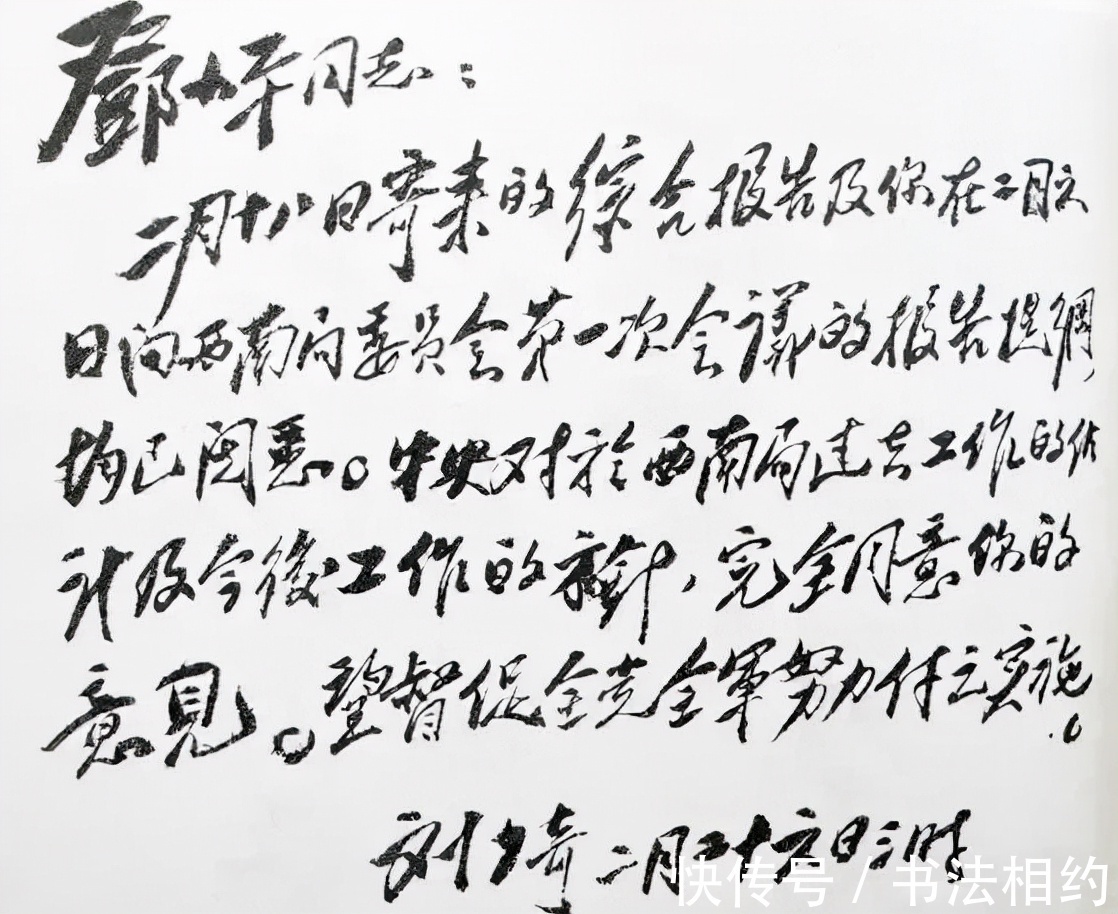 鄧小平同志：
二月十八日寄来的综合报告及你在二月六
日向西南局委员会第一次会议的报告提綱，
均已阅悉。中央对於西南局过去工作的估
计及今後工作的方針，完全同意你的
意見。望督促全党全軍努力付之实施。
刘少奇 二月二十六日三时
快传号 / 书法相约